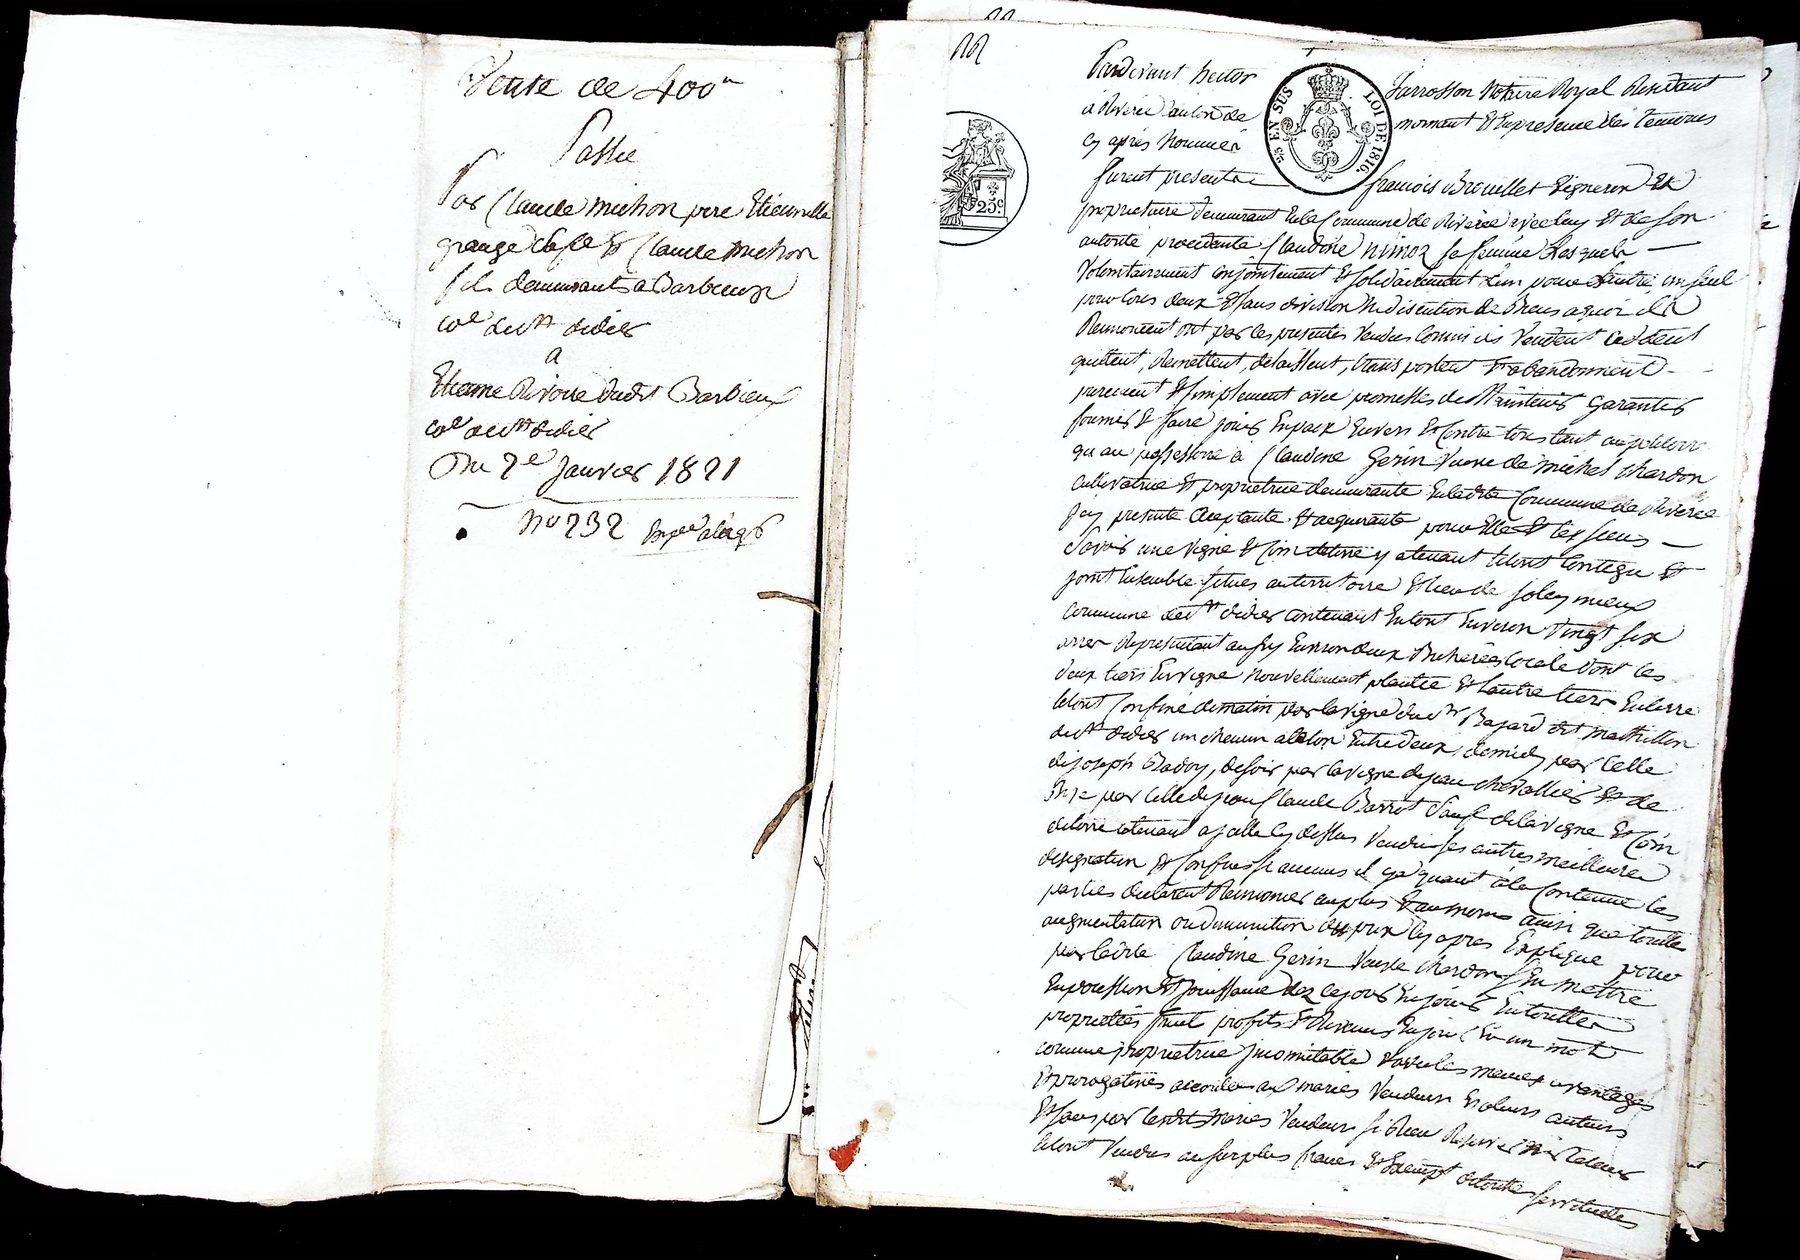 Vente de 400
Passée
Par Claude michon pere Etiennette
grange sa fe et Claude michon
fils demeurants a Barbieux
coe de st didier
a
Etienne Rivoire dudit Barbieux
coe de st didier
Du 2e Janvier 1821
No 232
Pardevant hector Jarrosson Notaire Royal Residant
à Riverie canton de mornant Et En presence des temoins
cy après nommés
furent presents françois Brouillet vigneron Et
proprietaire demeurant En la Commune de Riverie avec luy Et de son
autorité procedante Claudine nimoz sa femme Lesquels
Volontairement conjointement Et solidairement L'un pour L'autre un seul
pour tous deux Et sans division Ni discution de Biens a quoi ils
Renoncent ont par les presentes Vendus Comme ils Vendent Cedent
quittent, Remettent, delaissent, transportent Et abandonnent
purement Et simplement avec promesses de Maintenir Garantir
fournir Et faire jouir En paix Envers Et Contre tous tant au petitoire
qu au possessoire à Claudine Gerin Veuve de michel chardon
cultivatrice Et proprietrice demeurante En ladite Commune de Riverie
icy presente Acceptante Et acquerante pour Elle Et les siens
Savoir une vigne Et Coin de terre y atenant Le tout Contigu Et
joint Ensemble situés au territoire Et lieu de soleymieux
commune de st didier contenant En tout Environ Vingt six
ares Representant En Environ deux Bicherées locale dont les
deux tiers En vigne nouvellement plantée Et L'autre tiers En terre
Le tout Confine de matin par la vigne du sr Bajard dit mathillon
de st didier un chemin Entre deux, de midy par Celle
de joseph Badoy, de soir par la vigne de jean chevallier Et de
Bize par Celle de jean Claude Barrot Sauf de la vigne Et Coin
de terre atenant a jcelle cy dessus Vendu ses autres meilleures
designation Et Confins si aucuns il y a quant à la Contenue les
parties declarent Renoncer au plus Et au moins ainsi que toutes
augmentation ou diminution du prix cy apres Explique pour
par ladite Claudine Gerin Veuve chardon s'En mettre
En possession Et jouissance dez ce jour En jouir En toutes
proprietés fruit profits Et Revenus En jouir En un mot
comme proprietrice jncomutable Et avec les memes avantages
Et prerogatives accordés aux mariés Vendeurs Et a leurs auteurs
Et sans par lesdits mariés Vendeurs si Rien Reserver Ni Retenir
Le tout Vendus au surplus francs Et Exempt de toutes servitudes
25 EN SUS
LOI DE 1816.
25c